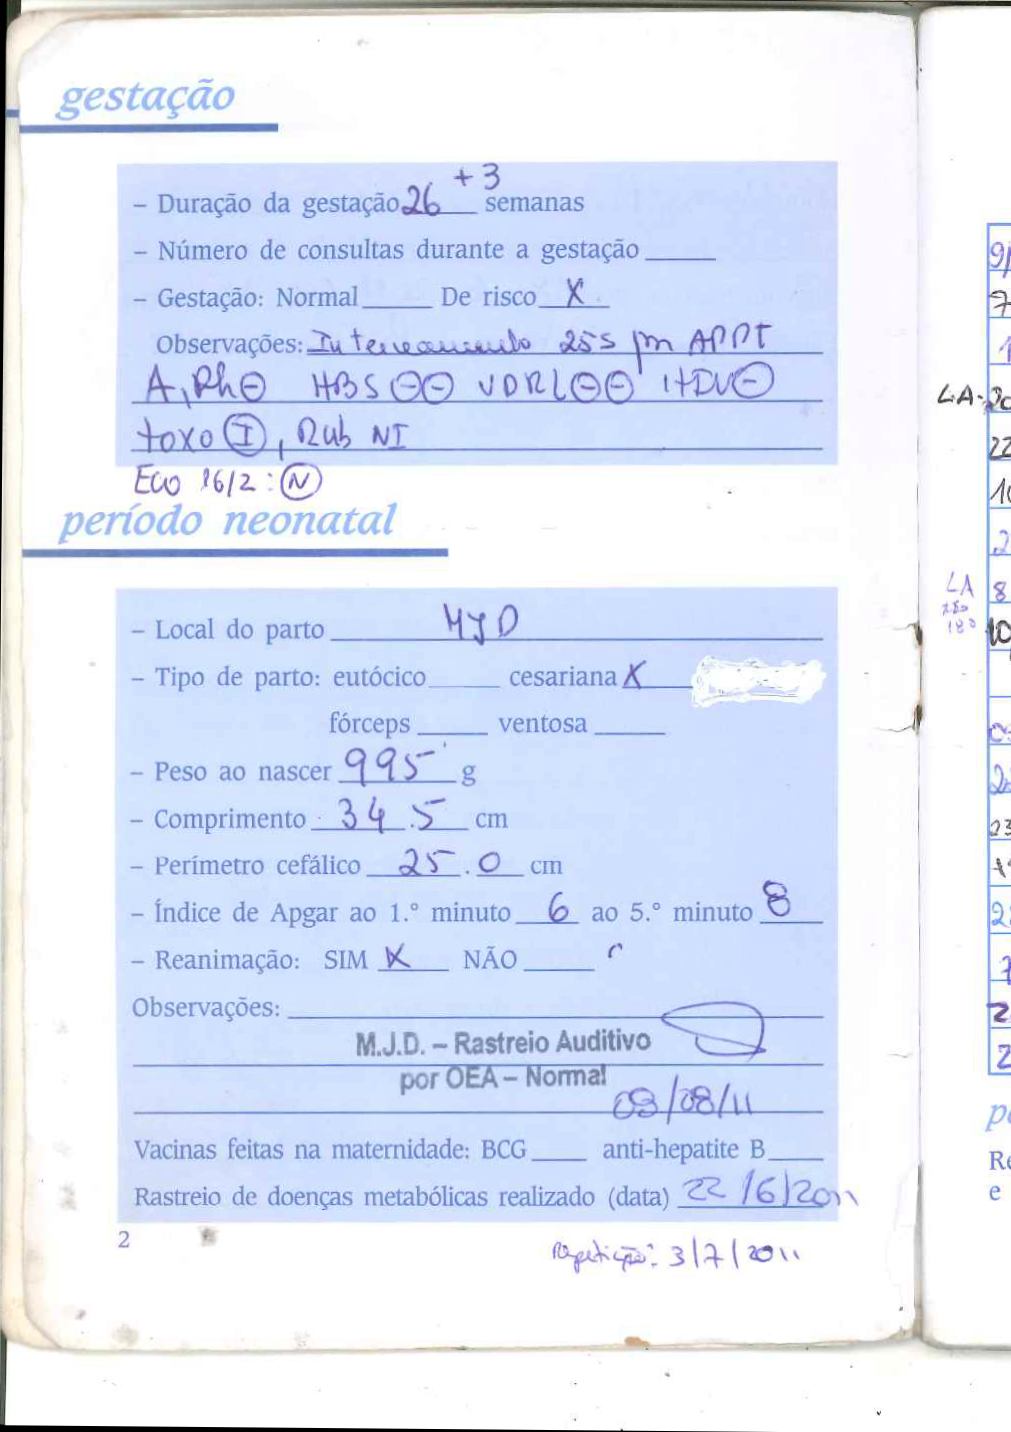 gestação
– Duração da gestação 26 +3 semanas
– Número de consultas durante a gestação
– Gestação: Normal De risco X
Observações: Internamento 25s por APPT
A, Rh⊖ HBS ⊖⊖ VDRL ⊖⊖ HIV⊖
toxo Ⓘ, Rub NI
Eco 16/2 : Ⓝ
período neonatal
– Local do parto MJD
– Tipo de parto: eutócico cesariana X
fórceps ventosa
– Peso ao nascer 995 g
– Comprimento 34.5 cm
– Perímetro cefálico 25.0 cm
– Índice de Apgar ao 1.º minuto 6 ao 5.º minuto 8
– Reanimação: SIM X NÃO
Observações:
M.J.D. – Rastreio Auditivo
por OEA – Normal
03/08/11
Vacinas feitas na maternidade: BCG anti-hepatite B
Rastreio de doenças metabólicas realizado (data) 22/6/2011
2
Repetição: 3/7/2011
LA
LA
180